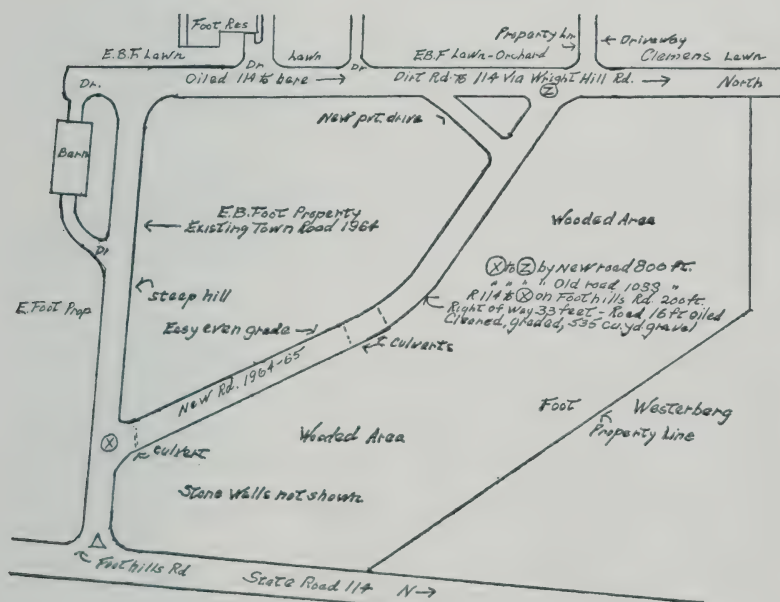 Foot Res
Property Ln
Driveway
E.B.F Lawn
Lawn
E.B.F Lawn-Orchard
Clemens Lawn
Dr.
Dr
Dr
Oiled 114 to here
Dirt Rd to 114 via Wright Hill Rd.
North
Z
New pvt. drive
Barn
E.B.Foot Property
Existing Town Road 1964
Wooded Area
Dr
steep hill
E.Foot Prop
X to Z by New road 800 ft.
" " " Old road 1033 "
R 114 to X on Foothills Rd. 200 ft.
Right of Way 33 feet - Road, 16 ft oiled
Cleaned, graded, 535 cu.yd gravel
Easy even grade
culverts
New Rd. 1964-65
Foot
Westerberg
Property Line
X
Wooded Area
culvert
Stone Walls not shown
Foothills Rd
State Road 114
N